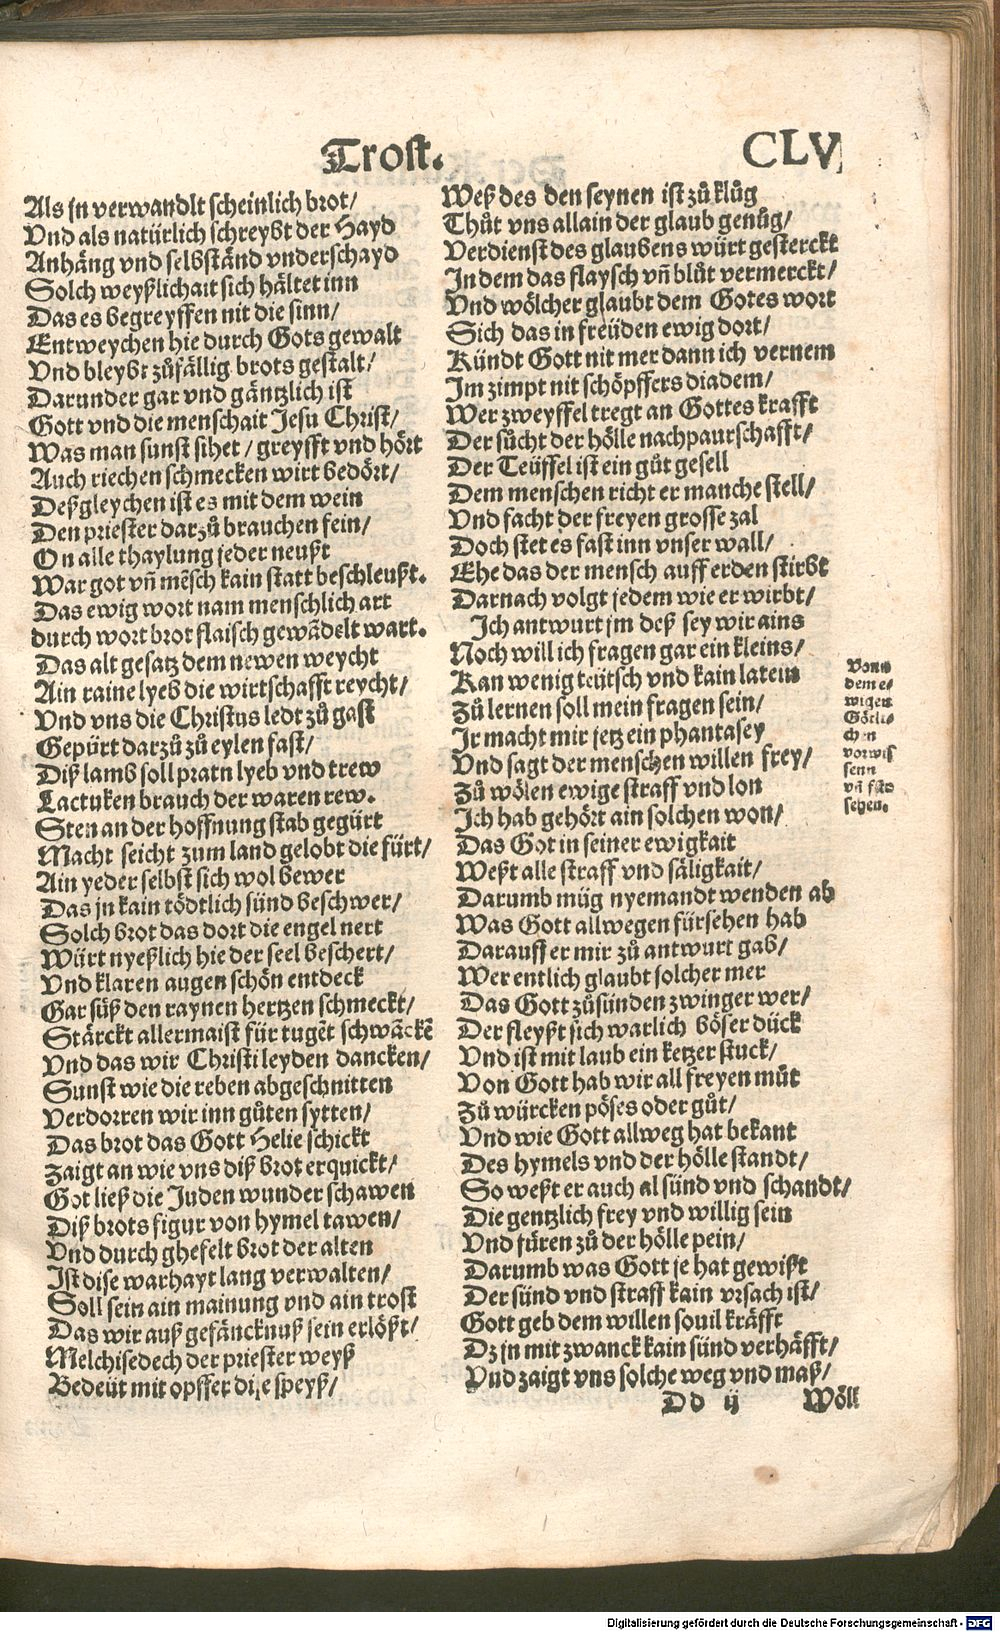 Trost.
CLV
Als jn verwandlt scheinlich brot/
Vnd als natürlich schreybt der Hayd
Anhäng vnd selbständ vnderschayd
Solch weyßlichait sich hältet inn
Das es begreyffen nit die sinn/
Entweychen hie durch Gots gewalt
Vnd bleybt zůfällig brots gestalt/
Darunder gar vnd gäntzlich ist
Gott vnd die menschait Jesu Christ/
Was man sunst sihet/ greyfft vnd hört
Auch riechen schmecken wirt bedört/
Deßgleychen ist es mit dem wein
Den priester darzů brauchen fein/
On alle thaylung jeder neußt
War got vñ mẽsch kain statt beschleußt.
Das ewig wort nam menschlich art
durch wort brot flaisch gewãdelt wart.
Das alt gesatz dem newen weycht
Ain raine lyeb die wirtschafft reycht/
Vnd vns die Christus ledt zů gast
Gepürt darzů zů eylen fast/
Diß lamb soll pratn lyeb vnd trew
Lactuken brauch der waren rew.
Sten an der hoffnung stab gegürt
Macht seicht zum land gelobt die fürt/
Ain yeder selbst sich wol bewer
Das jn kain tödtlich sünd beschwer/
Solch brot das dort die engel nert
Würt nyeßlich hie der seel beschert/
Vnd klaren augen schön entdeck
Gar süß den raynen hertzen schmeckt/
Stärckt allermaist für tugẽt schwãckẽ
Vnd das wir Christi leyden dancken/
Sunst wie die reben abgeschnitten
Verdorren wir inn gůten sytten/
Das brot das Gott Helie schickt
Zaigt an wie vns diß brot erquickt/
Got ließ die Juden wunder schawen
Diß brots figur von hymel tawen/
Vnd durch ghefelt brot der alten
Ist dise warhayt lang verwalten/
Soll sein ain mainung vnd ain trost
Das wir auß gefäncknuß sein erlößt/
Melchisedech der priester weyß
Bedeüt mit opffer dise speyß/
Weß des den seynen ist zů klůg
Thůt vns allain der glaub genůg/
Verdienst des glaubens würt gesterckt
In dem das flaysch vñ blůt vermerckt/
Vnd wölcher glaubt dem Gotes wort
Sich das in freüden ewig dort/
Kündt Gott nit mer dann ich vernem
Im zimpt nit schöpffers diadem/
Wer zweyffel tregt an Gottes krafft
Der sůcht der hölle nachpaurschafft/
Der Teüffel ist ein gůt gesell
Dem menschen richt er manche stell/
Vnd facht der freyen grosse zal
Doch stet es fast inn vnser wall/
Ehe das der mensch auff erden stirbt
Darnach volgt jedem wie er wirbt/
Ich antwurt jm deß sey wir ains
Noch will ich fragen gar ein kleins/
Kan wenig teütsch vnd kain latein
Zů lernen soll mein fragen sein/
Ir macht mir jetz ein phantasey
Vnd sagt der menschen willen frey/
Zů wölen ewige straff vnd lon
Ich hab gehört ain solchen won/
Das Got in seiner ewigkait
Weßt alle straff vnd säligkait/
Darumb müg nyemandt wenden ab
Was Gott allwegen fürsehen hab
Darauff er mir zů antwurt gab/
Wer entlich glaubt solcher mer
Das Gott zů sünden zwinger wer/
Der fleyßt sich warlich böser dück
Vnd ist mit laub ein ketzer stuck/
Von Gott hab wir all freyen můt
Zů würcken pöses oder gůt/
Vnd wie Gott allweg hat bekant
Des hymels vnd der hölle standt/
So weßt er auch al sünd vnd schandt/
Die gentzlich frey vnd willig sein
Vnd füren zů der hölle pein/
Darumb was Gott je hat gewißt
Der sünd vnd straff kain vrsach ist/
Gott geb dem willen souil kräfft
Dz jn mit zwanck kain sünd verhäfft/
Vnd zaigt vns solche weg vnd maß/
Vonn
dem e-
wigen
Götli-
chen
vorwis
senn
vñ für
sehen.
Dd ij
Wöll
Digitalisierung gefördert durch die Deutsche Forschungsgemeinschaft - DFG